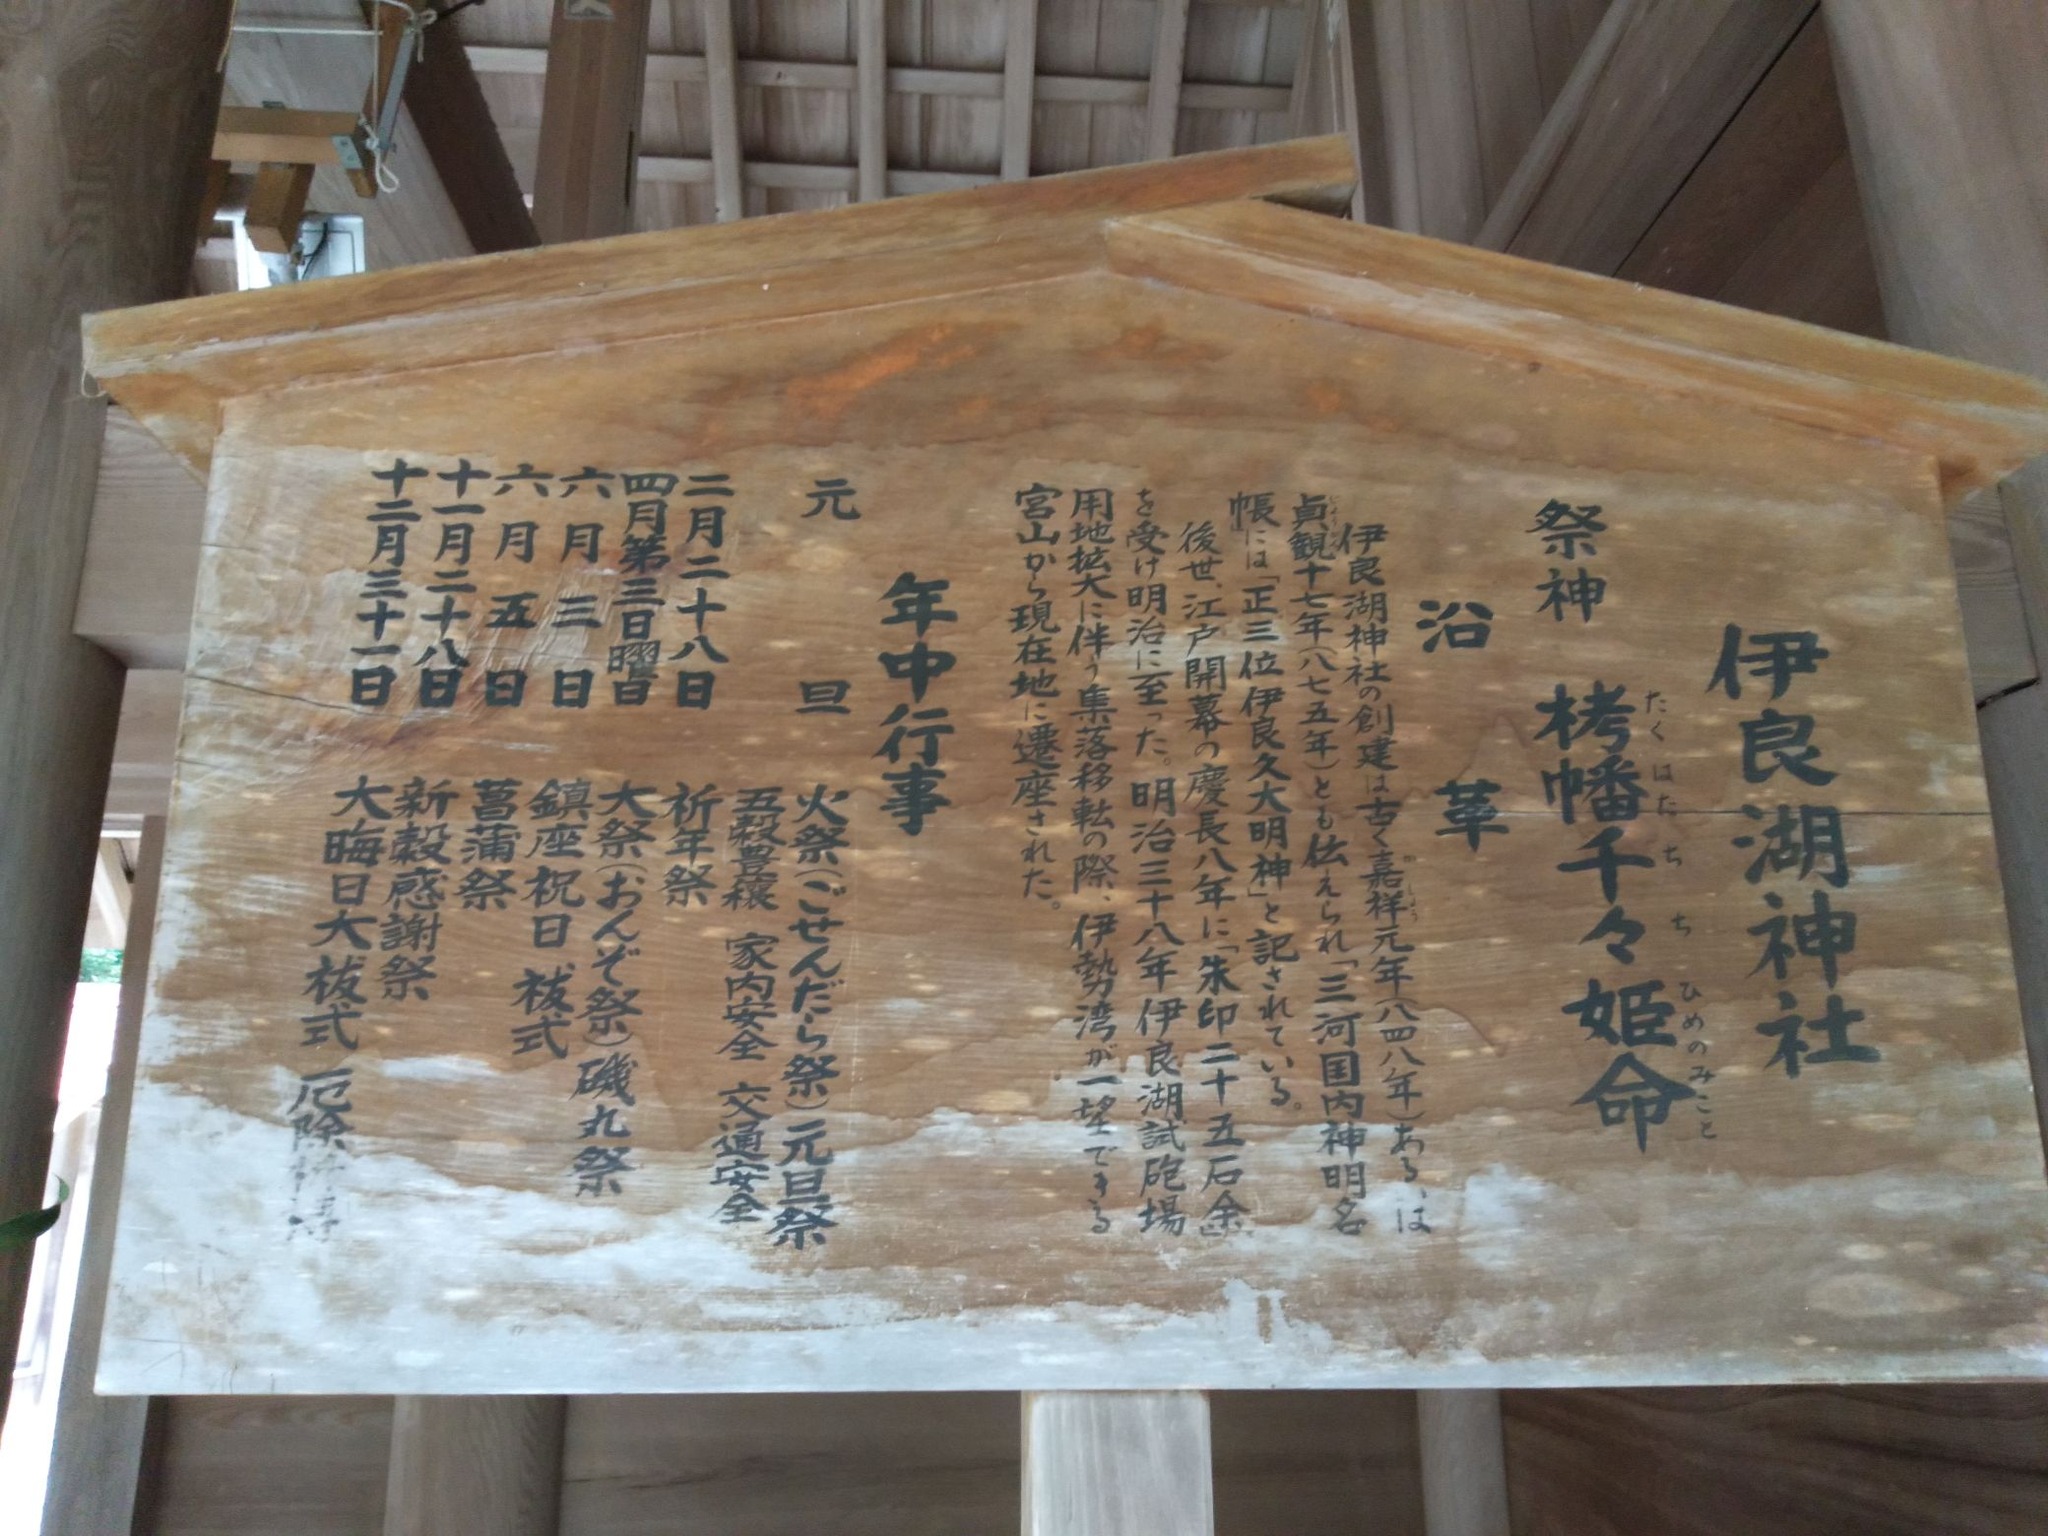 伊良湖神社
祭神 栲幡千々姫命
たくはたちちひめのみこと
沿革
伊良湖神社の創建は古く嘉祥元年(八四八年)あるいは
貞観十七年(八七五年)とも伝えられ「三河国内神明名
帳には「正三位伊良久大明神」と記されている。
後世、江戸開幕の慶長八年に「朱印二十五石余」
を受け明治に至った。明治三十八年伊良湖試砲場
用地拡大に伴う集落移転の際、伊勢湾が一望できる
宮山から現在地に遷座された。
年中行事
元旦 火祭(ごせんだら祭)元旦祭
五穀豊穣 家内安全 交通安全
二月二十八日 祈年祭
四月第三日曜日 大祭(おんぞ祭)磯丸祭
六月三日 鎮座祝日 祓式
六月五日 菖蒲祭
十一月二十八日 新穀感謝祭
十二月三十一日 大晦日大祓式 厄除